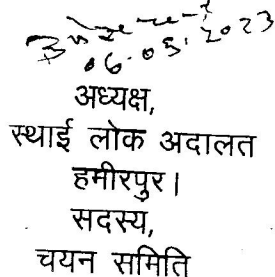 06.05.2023
अध्यक्ष,
स्थाई लोक अदालत
हमीरपुर।
सदस्य,
चयन समिति